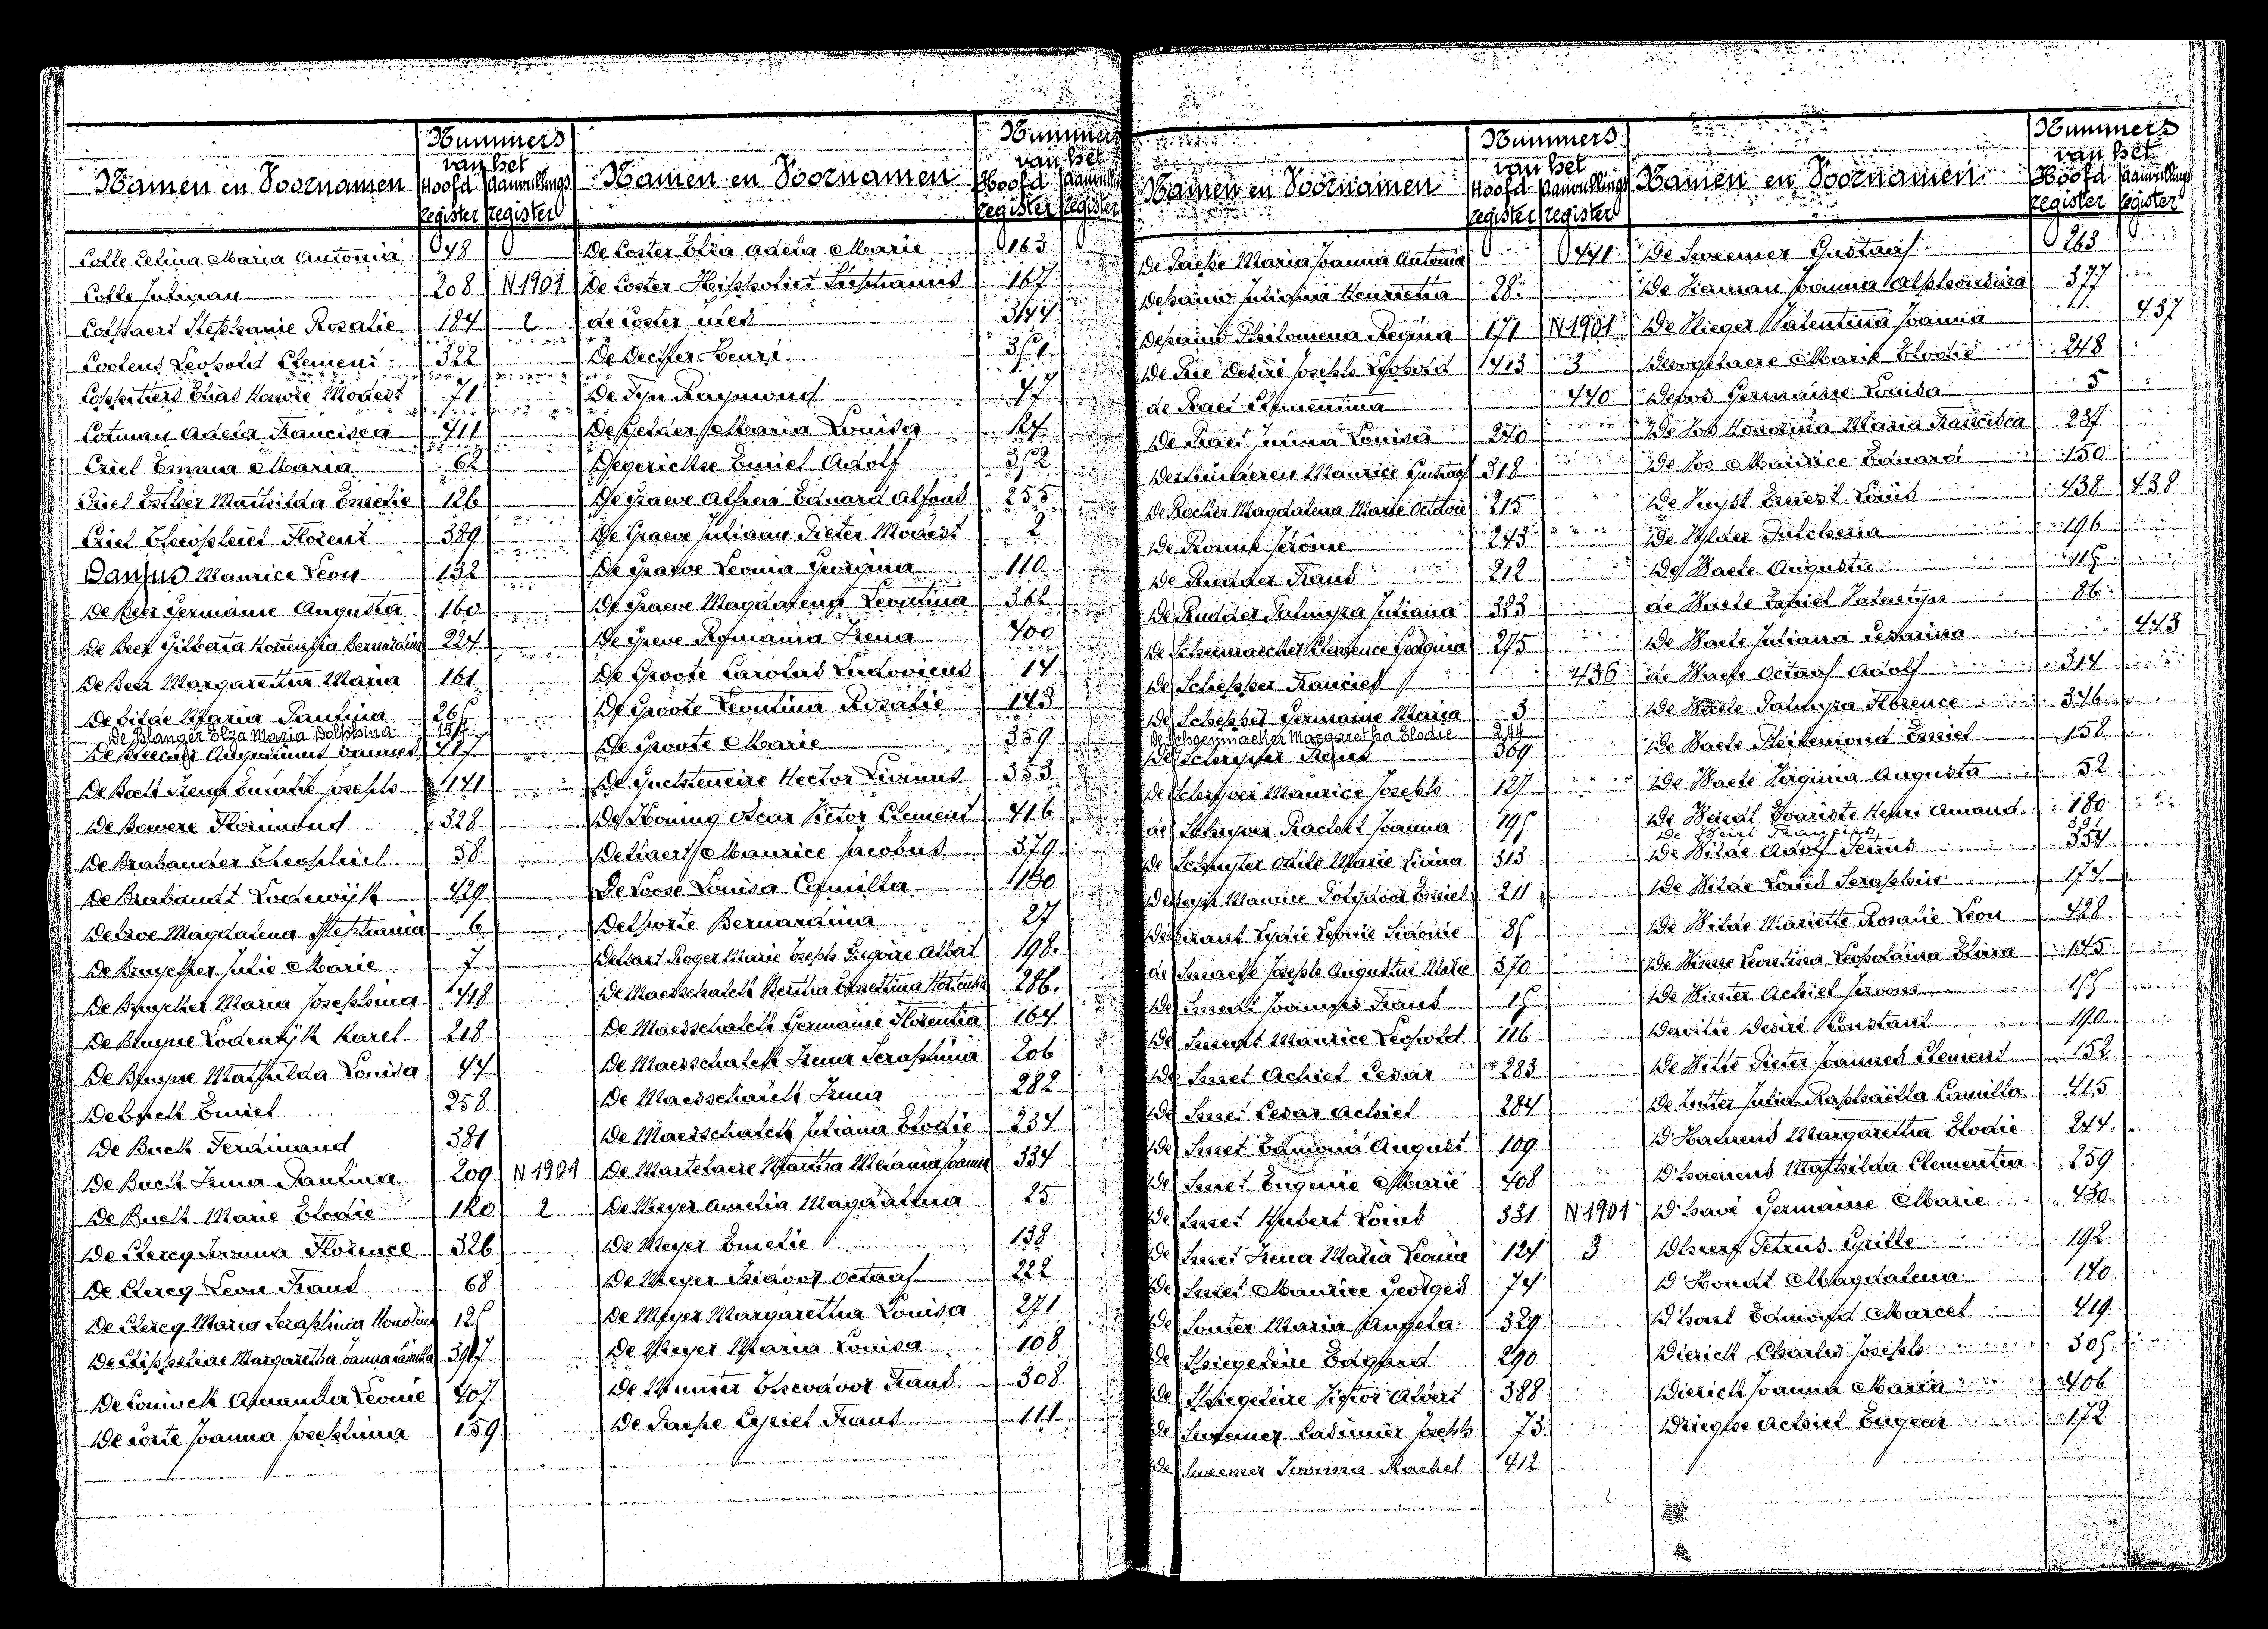 Nummers
van het
Namen en Voornamen Hoofd Aanvullings
register register
Colle Celina Maria Antonia 48
Colle Juliaan 208 N 1901
Colpaert Stephanie Rosalie 184 2
Coolens Leopold Clement 322
Coppitters Elias Honoré Modest 71
Cotman Adela Francisca 411
Criel Emma Maria 62
Criel Esther Mathilda Emelie 126
Criel Theophiel Florent 389
Danjus Maurice Leon 132
De Beer Germaine Augusta 160
De Beer Gilberta Hortensia Bernardina 224
De Beer Margaretha Maria 161
De bilde Maria Paulina
De Blanger Elza Maria Delphina
Augustinus Joannes
De Bock Irena Eulalie Joseph 141
De Boevere Florimond 328
De Brabander Theophiel 58
De Brabandt Lodewijk 429
Debroe Magdalena Stephania 6
De Bruycker Julie Marie 7
De Bruycker Maria Josephina 418
De Bruyne Lodewijk Karel 218
De Bruyne Mathilda Louisa 44
De buck Emiel 258
De Buck Ferdinand 381
De Buck Irma Paulina 209 N 1901
De Buck Marie Elodie 120 2
De Clercq Ivonna Florence 326
De Clercq Leon Frans 68
De Clercq Maria Seraphinia Honorine
De Clippeleire Margaretha Joanna Camilla
De Coninck Amanda Leonie 407
De corte Joanna Josephina 159
Nummers
van het
Namen en Voornamen Hoofd Aanvullings
register register
De Coster Elza Adela Marie 163
De Coster Hippoliet Stephanus 167
de coster med 344
De Decker Henri
De Fyn Raymond 47
De Gelder Maria Louisa 24
Degerickse Emiel Adolf 352
De Graeve Alfred Eduard Alfons 255
De Graeve Juliaan Pieter Modest 2
De Graeve Leonia Georgina 110
De Graeve Magdalena Leontina 362
De Greve Romania Irena 400
De Groote Carolus Ludovicus 14
De Groote Leontina Rosalie 143
De Groote Marie 359
De Guchteneire Hector Livinus 353
De Koning Oscar Victor Clement 416
Delaert Maurice Jacobus 379
De Loose Louisa Camilla 430
Delporte Bernardina 27
Delsart Roger Marie Joseph Gregoire Albert 198
De Maesschalck Bertha Ernestina Hortentia 286
De Maesschalck Germaine Florentia 164
De Maesschalck Irena Seraphina 206
De Maesschalck Irma 282
De Maesschalck Juliana Elodie 234
De Martelaere Martha Melania Joanna 334
De Meyer Amelia Magdalena 25
De Meyer Emelie 138
De Meyer Isidoor Octaaf 222
De Meyer Margaretha Louisa 271
De Meyer Maria Louisa 108
De Munter Theodoor Frans 308
De Paepe Cyriel Frans 111
Nummers
van het
Namen en Voornamen Hoofd Aanvullings
register register
De Paepe Maria Joanna Antonia 441
Depauw Juliania Henrietta 28
Depauw Philomena Regina 171 N 1901
De Pré Desiré Joseph Leopold 413 3
de Raet Clementina 440
De Raet Irma Louisa 240
Derkinderen Maurice Gustaaf 318
De Rocker Magdalena Marie Octavie 215
De Ronne Jérôme 243
De Rudder Frans 212
De Rudder Palmyra Juliana 323
De Scheemaecker Clemence Georgina 275
De Schepper Francies 436
De Schepper Germaine Maria 3
De Schoenmacker Margaretha Elodie 244
De Schrijver Frans 369
De Schrijver Maurice Joseph 127
de Schryver Rachel Joanna
De Schuyter Odile Marie Livina 313
Desloovere Maurice Polydoor Emiel 211
Desirant Lydie Leonie Sidonie
de Smaele Joseph Augustin Marie 370
De Smedt Joannes Frans
De Smedt Maurice Leopold 116
De Smet Achiel Cesar 283
De Smet Cesar Achiel 284
De Smet Edmond August 109
De Smet Eugenie Marie 408
De Smet Hubert Louis 331 N 1901
De Smet Irena Maria Leonia 124 3
De Smet Maurice Georges 74
De Souter Maria Angela 329
De Spiegeleire Edgard 290
De Spiegeleire Victor Albert 388
De Sweemer Casimier Joseph 73
De Sweemer Ivonna Rachel 412
Nummers
van het
Namen en Voornamen Hoofd Aanvullings
register register
De Sweemer Gustaaf 263
De Vierman Joanna Alphonsina 377
De Vlieger Valentina Joanna 437
Devogelaere Maria Elodie 248
Devos Germaine Louisa 5
De Vos Honorina Maria Francisca 237
De Vos Maurice Eduard 150
De Vuyst Ernest Louis 438 438
De Vylder Pulcheria 196
De Waele Augusta
de Waele Emiel Valentyn 86
De Waele Juliana Cesarina 443
de Waele Octaaf Adolf 314
De Waele Palmyra Florence 346
De Waele Philemond Emiel 158
De Waele Virginia Augusta 52
De Weirdt Evariste Henri Amand 180
De Weirt Francies 391
De Wilde Adolf Petrus 354
De Wilde Louis Seraphin 174
De Wilde Mariette Rosalie Leon 428
De Winne Leontina Leopoldina Elvira 145
De Winter Achiel Jeroom
Dewitte Desiré Konstant 190
De Witte Pieter Joannes Clement 152
De Zutter Julia Raphaëlla Camilla 415
D'Haenens Margaretha Elodie 244
D'haenens Mathilda Clementia 259
D'havé Germaine Marie 430
Dheere Petrus Cyrille 192
D'Hondt Magdalena 140
D'hont Edmond Marcel 419
Dierick Charles Joseph 305
Dierick Joanna Maria 406
Drieghe Achiel Eugeen 172